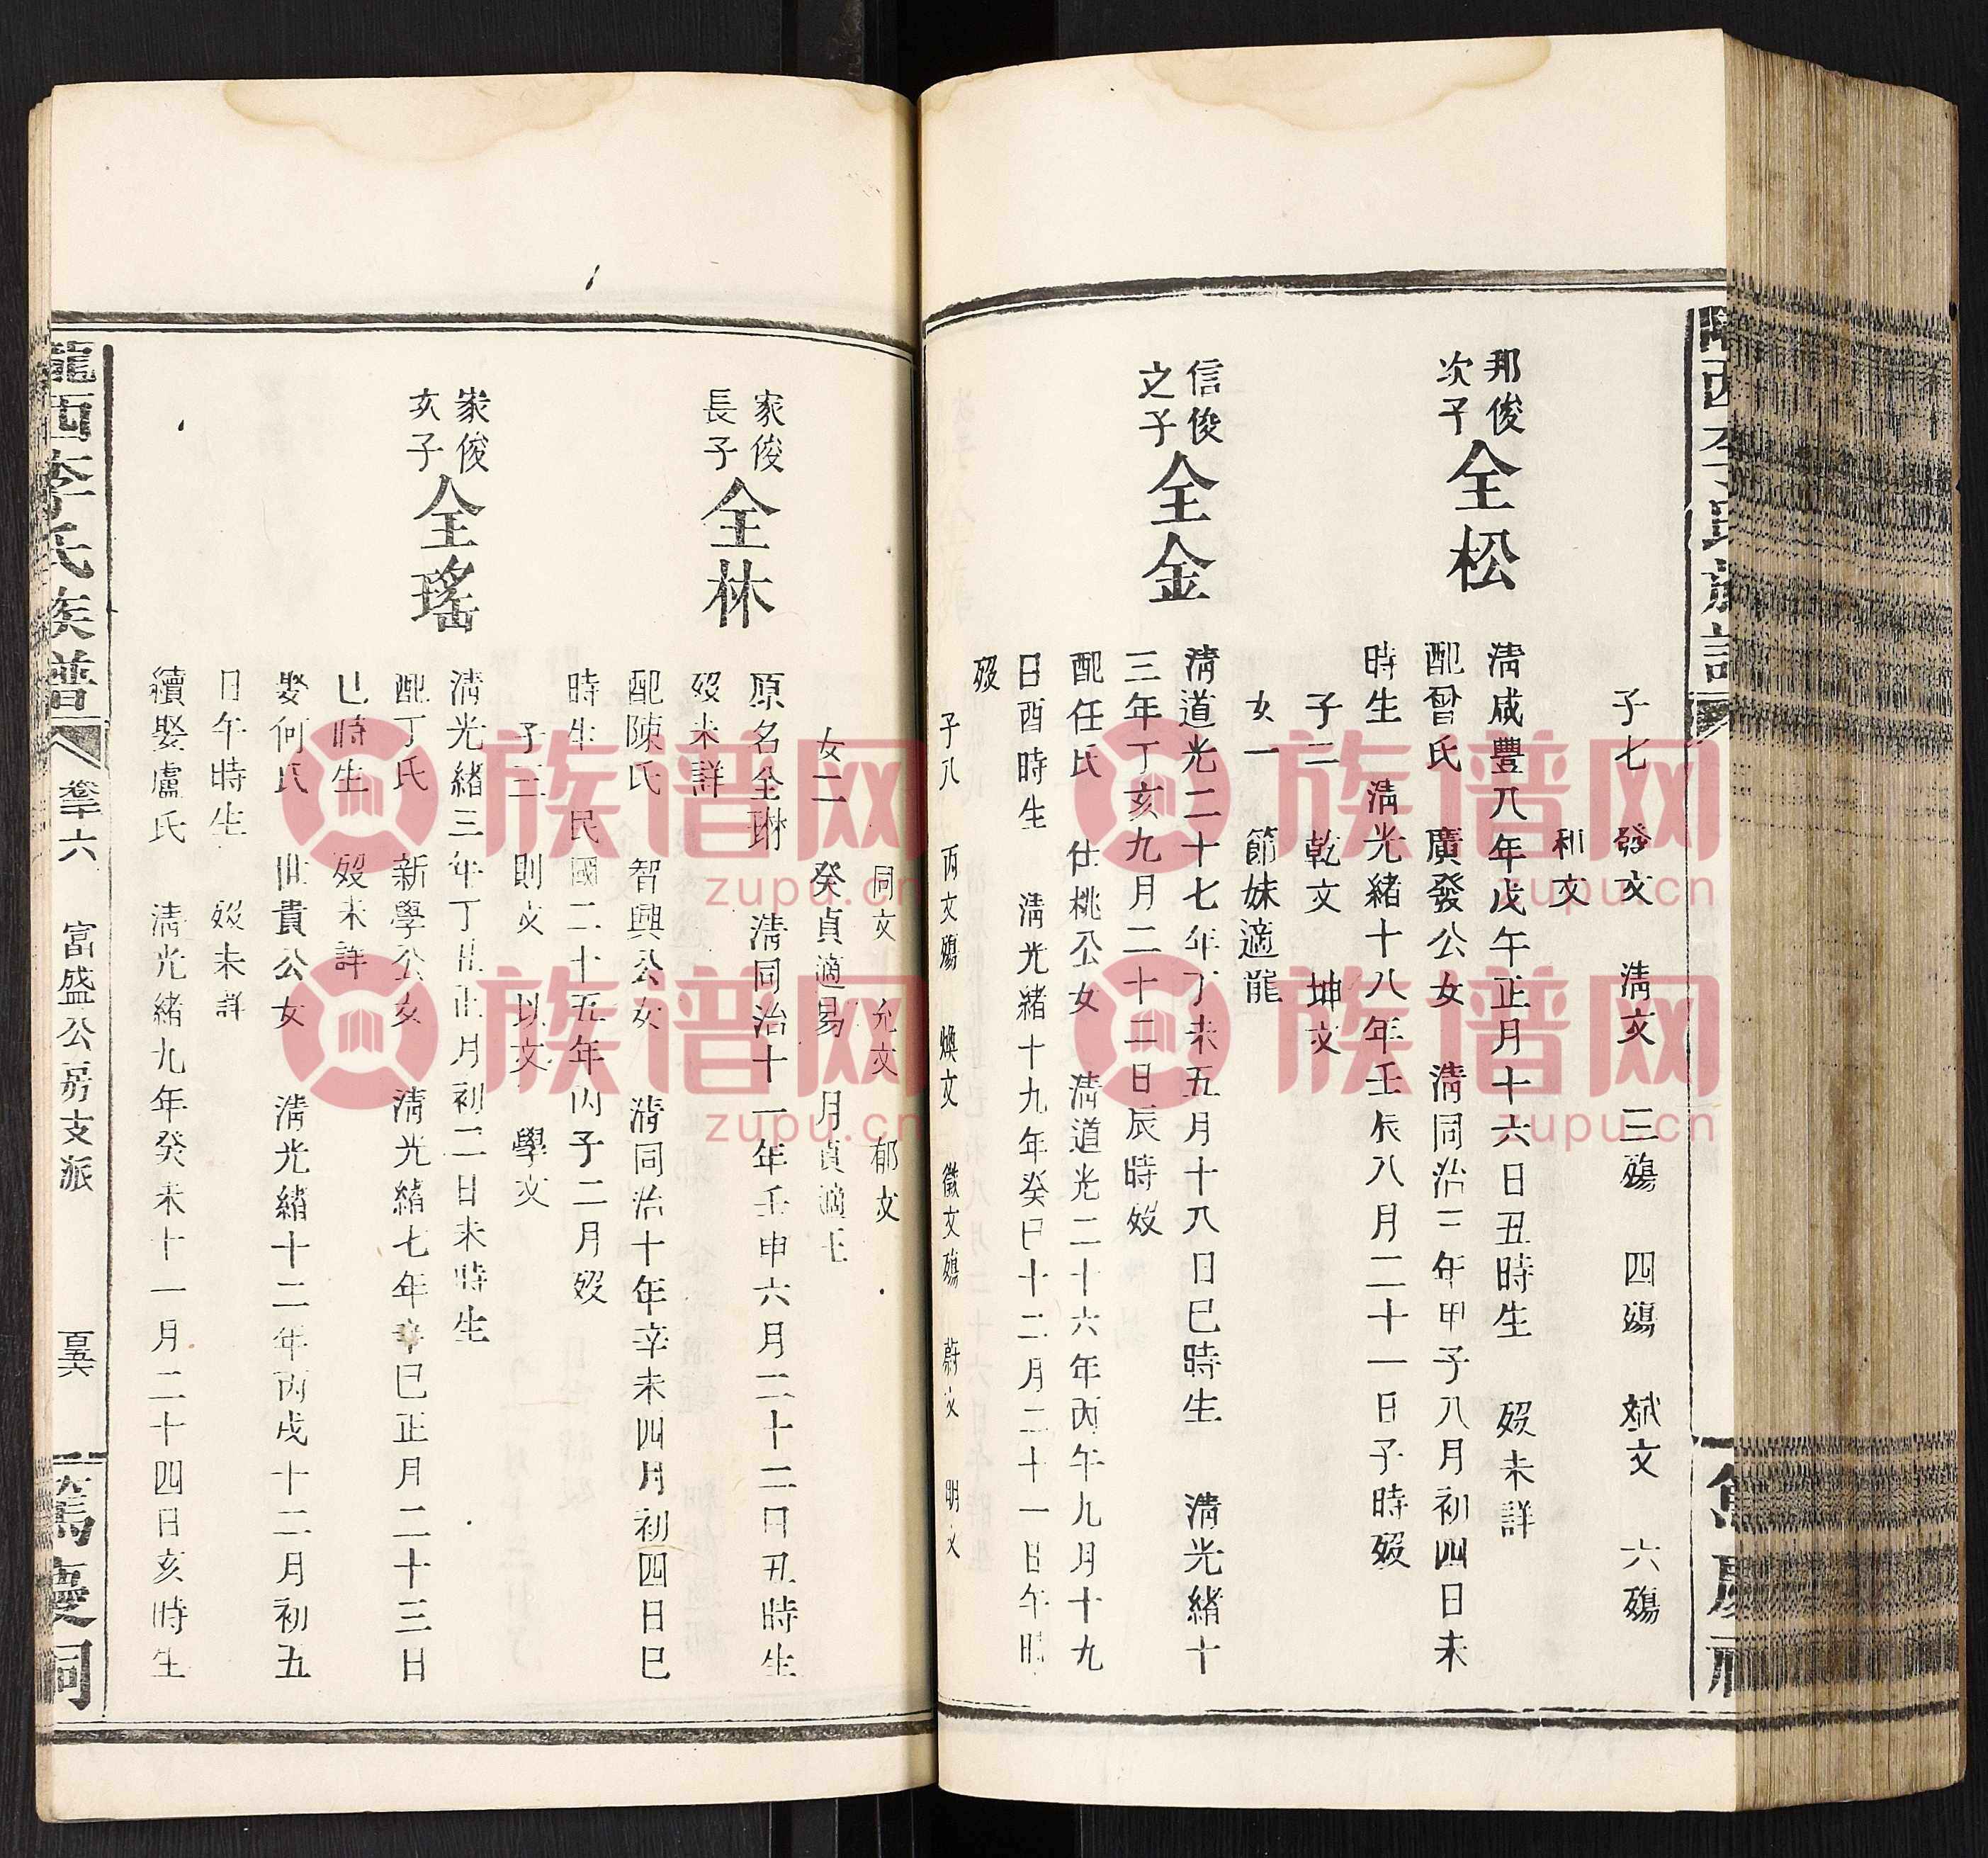 隴西李氏族譜
子七 發文 清文 三殤 四殤 斌文 六殤
利文
邦俊次子 全松
清咸豐八年戊午正月十六日丑時生 歿未詳
配曾氏 廣發公女 清同治三年甲子八月初四日未
時生 清光緒十八年壬辰八月二十一日子時歿
子二 乾文 坤文
女一 節妹適龍
信俊之子 全金
清道光二十七年丁未五月十八日巳時生 清光緒十
三年丁亥九月二十二日辰時歿
配任氏 仕桃公女 清道光二十六年丙午九月十九
日酉時生 清光緒十九年癸巳十二月二十一日午時
歿
子八 丙文殤 煥文 徵文殤 蔚文 明文
同文 允文 郁文
女二 癸貞適易 月貞適王
家俊長子 全林
原名全琳 清同治十一年壬申六月二十二日丑時生
歿未詳
配陳氏 智興公女 清同治十年辛未四月初四日巳
時生 民國二十五年丙子二月歿
子三 則文 以文 學文
家俊次子 全瑤
清光緒三年丁丑正月初二日未時生
配丁氏 新學公女 清光緒七年辛巳正月二十三日
巳時生 歿未詳
娶何氏 世貴公女 清光緒十二年丙戌十二月初五
日午時生 歿未詳
續娶盧氏 清光緒九年癸未十一月二十四日亥時生
隴西李氏族譜 六 富盛公房支派 百五六 篤慶祠
族谱网
zupu.cn
族谱网
zupu.cn
族谱网
zupu.cn
族谱网
zupu.cn